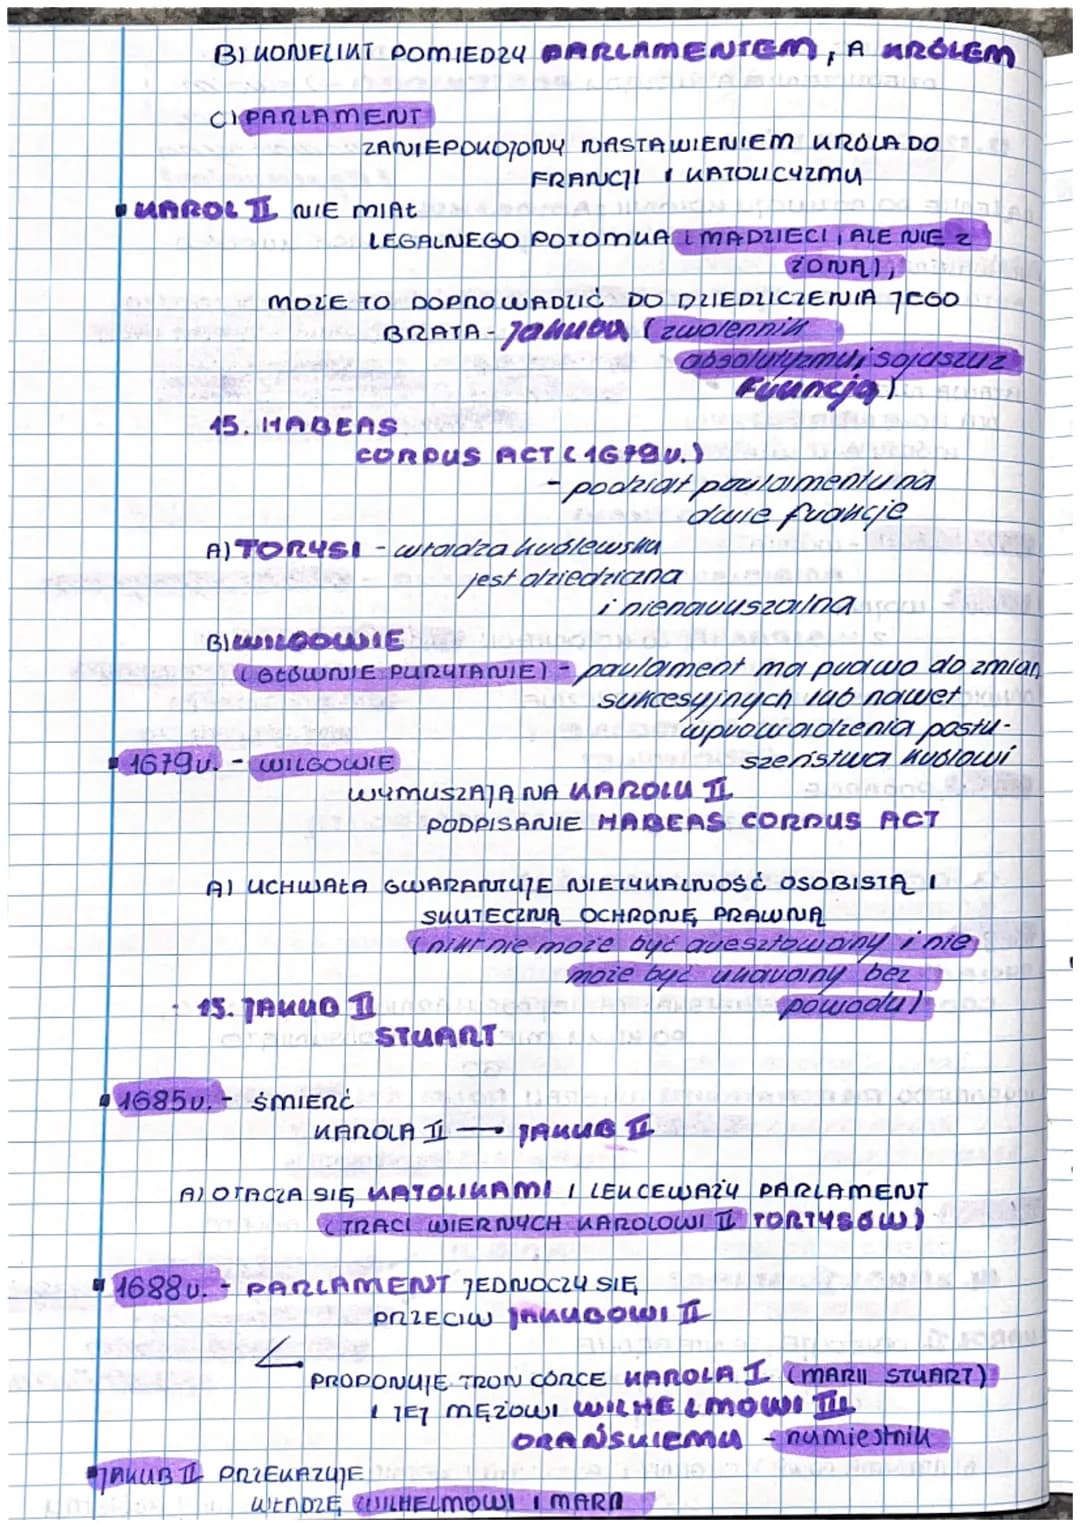 B) KONFLIKT POMIEDZY PARLAMENTEM, A KRÓLEM
C) PARLAMENT
ZANIEPOKOJONY NASTAWIENIEM KRÓLA DO
FRANCJI I KATOLICYZMU
KAROL II NIE MIAŁ
LEGALNEGO POTOMKA (MA DZIECI, ALE NIE Z
ŻONĄ),
MOŻE TO DOPROWADZIĆ DO DZIEDZICZENIA JEGO
BRATA - Jakuba (zwolennik
absolutyzmu i sojuszu z
Francją)
15. HABEAS
CORPUS ACT (1679r.)
- podział parlamentu na
dwie frakcje
A) TORYSI - władza królewska
jest dziedziczna
i nienaruszalna
B) WIGOWIE
(GŁÓWNIE PURYTANIE) - parlament ma prawo do zmian
sukcesyjnych lub nawet
wprowadzenia posłu-
szeństwa królowi
1679r. - WIGOWIE
WYMUSZAJĄ NA KAROLU II
PODPISANIE HABEAS CORPUS ACT
A) UCHWAŁA GWARANTUJE NIETYKALNOŚĆ OSOBISTĄ I
SKUTECZNĄ OCHRONĘ PRAWNĄ
(nikt nie może być aresztowany i nie
może być ukarany bez
powodu)
15. JAKUB II
STUART
1685r. - ŚMIERĆ
KAROLA II — JAKUB II
A) OTACZA SIĘ KATOLIKAMI I LEKCEWAŻY PARLAMENT
(TRACI WIERNYCH KAROLOWI II TORTYSÓW)
1688r. - PARLAMENT JEDNOCZY SIĘ
PRZECIW JAKUBOWI II
PROPONUJE TRON CÓRCE KAROLA I (MARII STUART)
I JEJ MĘŻOWI WILHELMOWI III
ORAŃSKIEMU - namiestnik
JAKUB II PRZEKAZUJE
WŁADZĘ WILHELMOWI I MARII